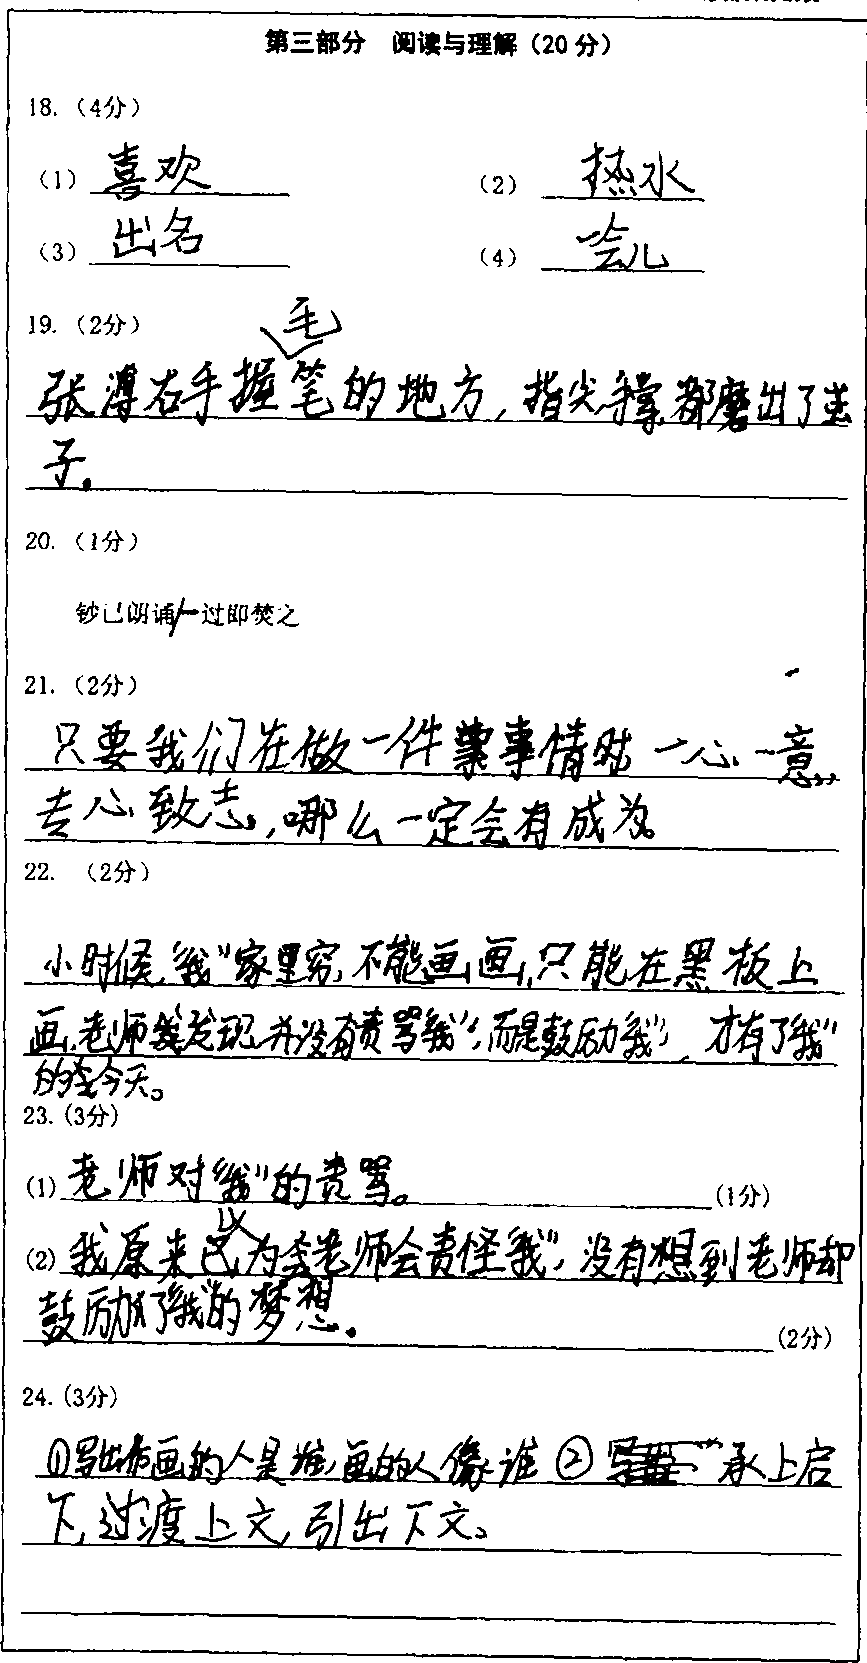 第三部分 阅读与理解（20分）
18.（4分）
（1）喜欢 （2）热水
（3）出名 （4）会儿
19.（2分）
毛
张溥右手握笔的地方，指尖掌都磨出了茧
子。
20.（1分）
钞已朗诵/一过即焚之
21.（2分）
只要我们在做一件事情时一心一意，
专心致志，哪么一定会有成为。
22. （2分）
小时候，“我”家里穷，不能画画，只能在黑板上
画，老师发现并没有责骂“我”，而是鼓励“我”，才有了“我”
的今天。
23.（3分）
（1）老师对“我”的责骂。（1分）
以
（2）我原来已为老师会责怪“我”，没有想到老师却
鼓励了“我”的梦想。（2分）
24.（3分）
①写出布画的人是谁，画的人像谁 ② 承上启
下，过渡上文，引出下文。